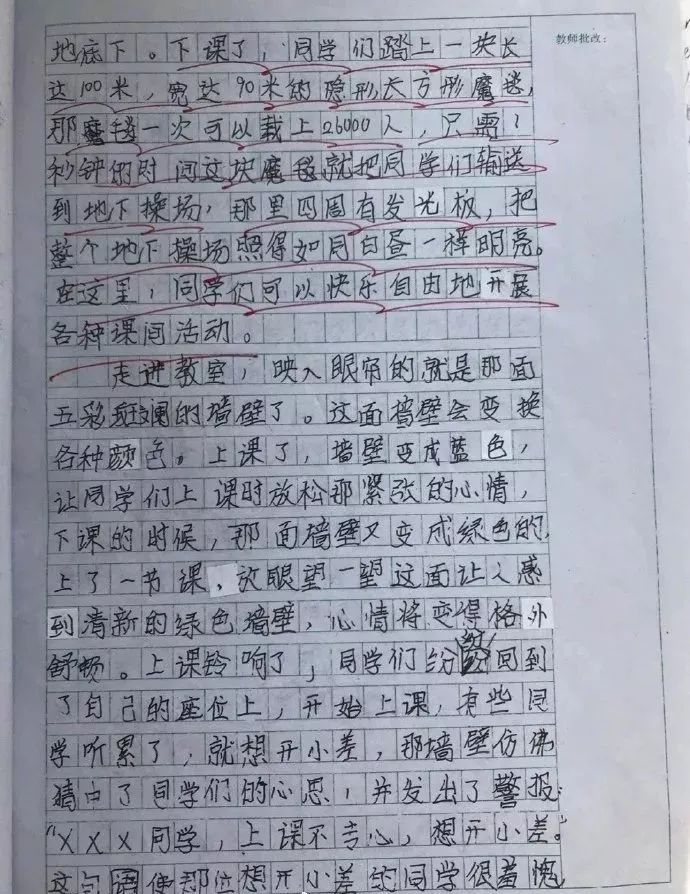 教师批改：
地底下。下课了，同学们踏上一块长
达100米，宽达90米的隐形长方形魔毯，
那魔毯一次可以载上26000人，只需1
秒钟的时间这块魔毯就把同学们输送
到地下操场，那里四周有发光板，把
整个地下操场照得如同白昼一样明亮。
在这里，同学们可以快乐自由地开展
各种课间活动。
走进教室，映入眼帘的就是那面
五彩斑斓的墙壁了。这面墙壁会变换
各种颜色。上课了，墙壁变成蓝色，
让同学们上课时放松那紧张的心情，
下课的时候，那面墙壁又变成绿色的，
上了一节课，放眼望一望这面让人感
到清新的绿色墙壁，心情将变得格外
舒顿。上课铃响了，同学们纷纷回到
了自己的座位上，开始上课，有些同
学听累了，就想开小差，那墙壁仿佛
猜中了同学们的心思，并发出了警报：
“XXX同学，上课不专心，想开小差。”
这句语使那位想开小差的同学很羞愧